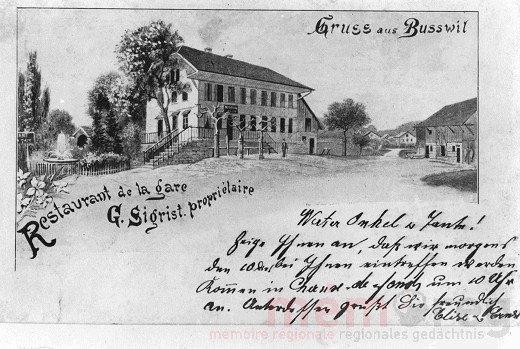 Gruss aus Busswil
Restaurant de la gare
G. Sigrist. propriétaire
Onkel u. Tante!
Zeige Ihnen an, daß wir morgens
den 10. bei Ihnen eintreffen werden
Kommen in Chaux-de-fonds um 10 Uhr
an. grüßt Sie freundlich
Elise
mémoire régionale regionales gedächtnis